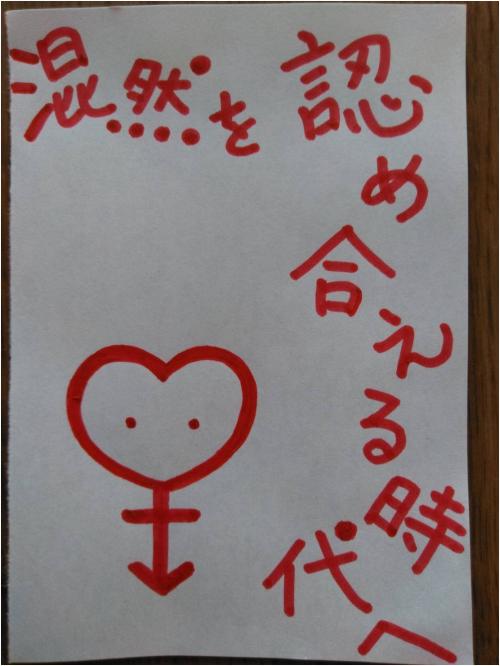 混然を
認め
合える時
代へ